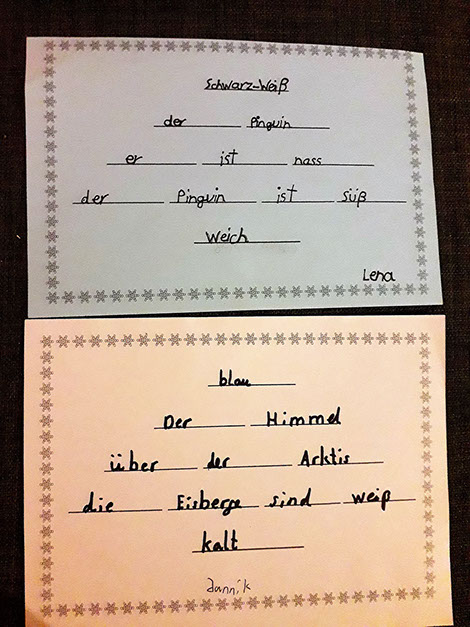 Schwarz-Weiß
der Pinguin
er ist nass
der Pinguin ist süß
weich
Lena
blau
Der Himmel
über der Arktis
die Eisberge sind weiß
kalt
Jannik